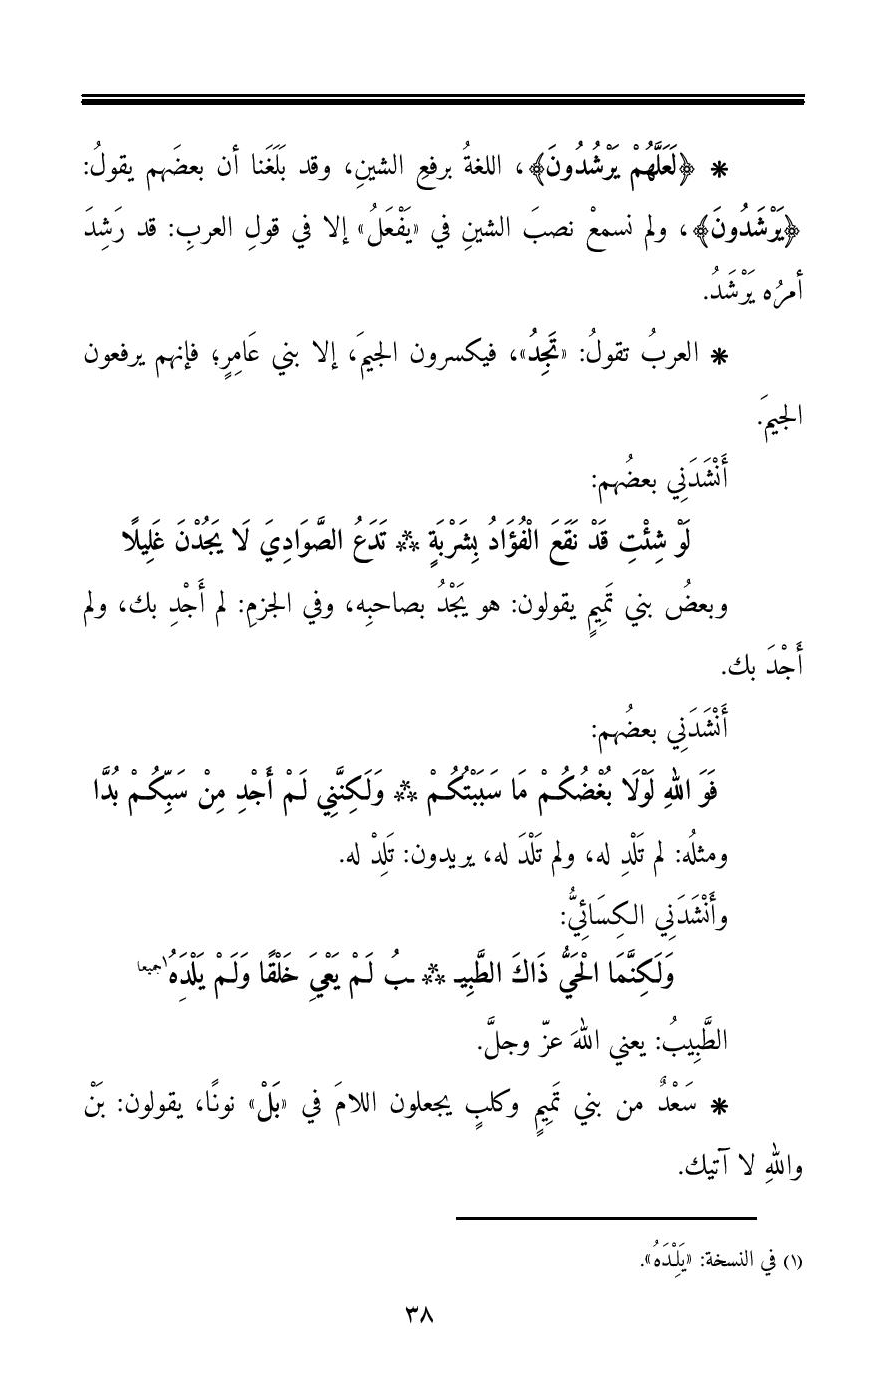 * ﴿لَعَلَّهُمْ يَرْشُدُونَ﴾، اللغةُ برفعِ الشينِ، وقد بَلَغَنا أن بعضَهم يقولُ:
﴿يَرْشَدُونَ﴾، ولم نسمعْ نصبَ الشينِ في «يَفْعَلُ» إلا في قولِ العربِ: قد رَشِدَ
أمرُه يَرْشَدُ.
* العربُ تقولُ: «تَجِدُ»، فيكسرون الجيمَ، إلا بني عَامِرٍ؛ فإنهم يرفعون
الجيمَ.
أَنْشَدَنِي بعضُهم:
لَوْ شِئْتِ قَدْ نَقَعَ الْفُؤَادُ بِشَرْبَةٍ ** تَدَعُ الصَّوَادِيَ لَا يَجُدْنَ غَلِيلًا
وبعضُ بني تَمِيمٍ يقولون: هو يَجْدُ بصاحبِه، وفي الجزمِ: لم أَجْدِ بك، ولم
أَجْدَ بك.
أَنْشَدَنِي بعضُهم:
فَوَ اللهِ لَوْلَا بُغْضُكُمْ مَا سَبَبْتُكُمْ ** وَلَكِنَّنِي لَمْ أَجْدِ مِنْ سَبِّكُمْ بُدَّا
ومثلُه: لم تَلْدِ له، ولم تَلْدَ له، يريدون: تَلِدْ له.
وأَنْشَدَنِي الكِسَائِيُّ:
وَلَكِنَّمَا الْحَيُّ ذَاكَ الطَّبِيـ ** ـبُ لَمْ يَعْيَ خَلْقًا وَلَمْ يَلْدَهُ١جميعا
الطَّبِيبُ: يعني اللهَ عزّ وجلَّ.
* سَعْدٌ من بني تَمِيمٍ وكلبٍ يجعلون اللامَ في «بَلْ» نونًا، يقولون: بَنْ
واللهِ لا آتيك.
(١) في النسخة: «يَلِدَهُ».
٣٨